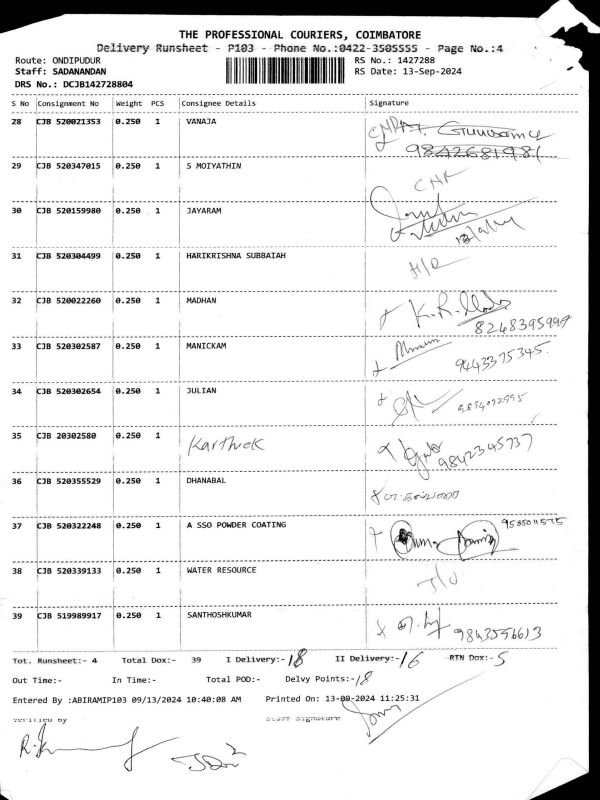 THE PROFESSIONAL COURIERS, COIMBATORE
Delivery Runsheet - P103 - Phone No.:0422-3505555 - Page No.:4
Route: ONDIPUDUR RS No.: 1427288
Staff: SADANANDAN RS Date: 13-Sep-2024
DRS No.: DCJB142728804
S No Consignment No Weight PCS Consignee Details Signature
28 CJB 520021353 0.250 1 VANAJA
9842681981
29 CJB 520347015 0.250 1 S MOIYATHIN
30 CJB 520159980 0.250 1 JAYARAM
31 CJB 520304499 0.250 1 HARIKRISHNA SUBBAIAH
32 CJB 520022260 0.250 1 MADHAN K.R.
33 CJB 520302587 0.250 1 MANICKAM 9443375345
34 CJB 520302654 0.250 1 JULIAN
35 CJB 20302580 0.250 1 Karthick 9842345737
36 CJB 520355529 0.250 1 DHANABAL
37 CJB 520322248 0.250 1 A SSO POWDER COATING
38 CJB 520339133 0.250 1 WATER RESOURCE
39 CJB 519989917 0.250 1 SANTHOSHKUMAR 9843556613
Tot. Runsheet:- 4 Total Dox:- 39 I Delivery:- 18 II Delivery:- 16 RTN Dox:- 5
Out Time:- In Time:- Total POD:- Delvy Points:- 18
Entered By :ABIRAMIP103 09/13/2024 10:40:08 AM Printed On: 13-09-2024 11:25:31
Verified By Staff Signature